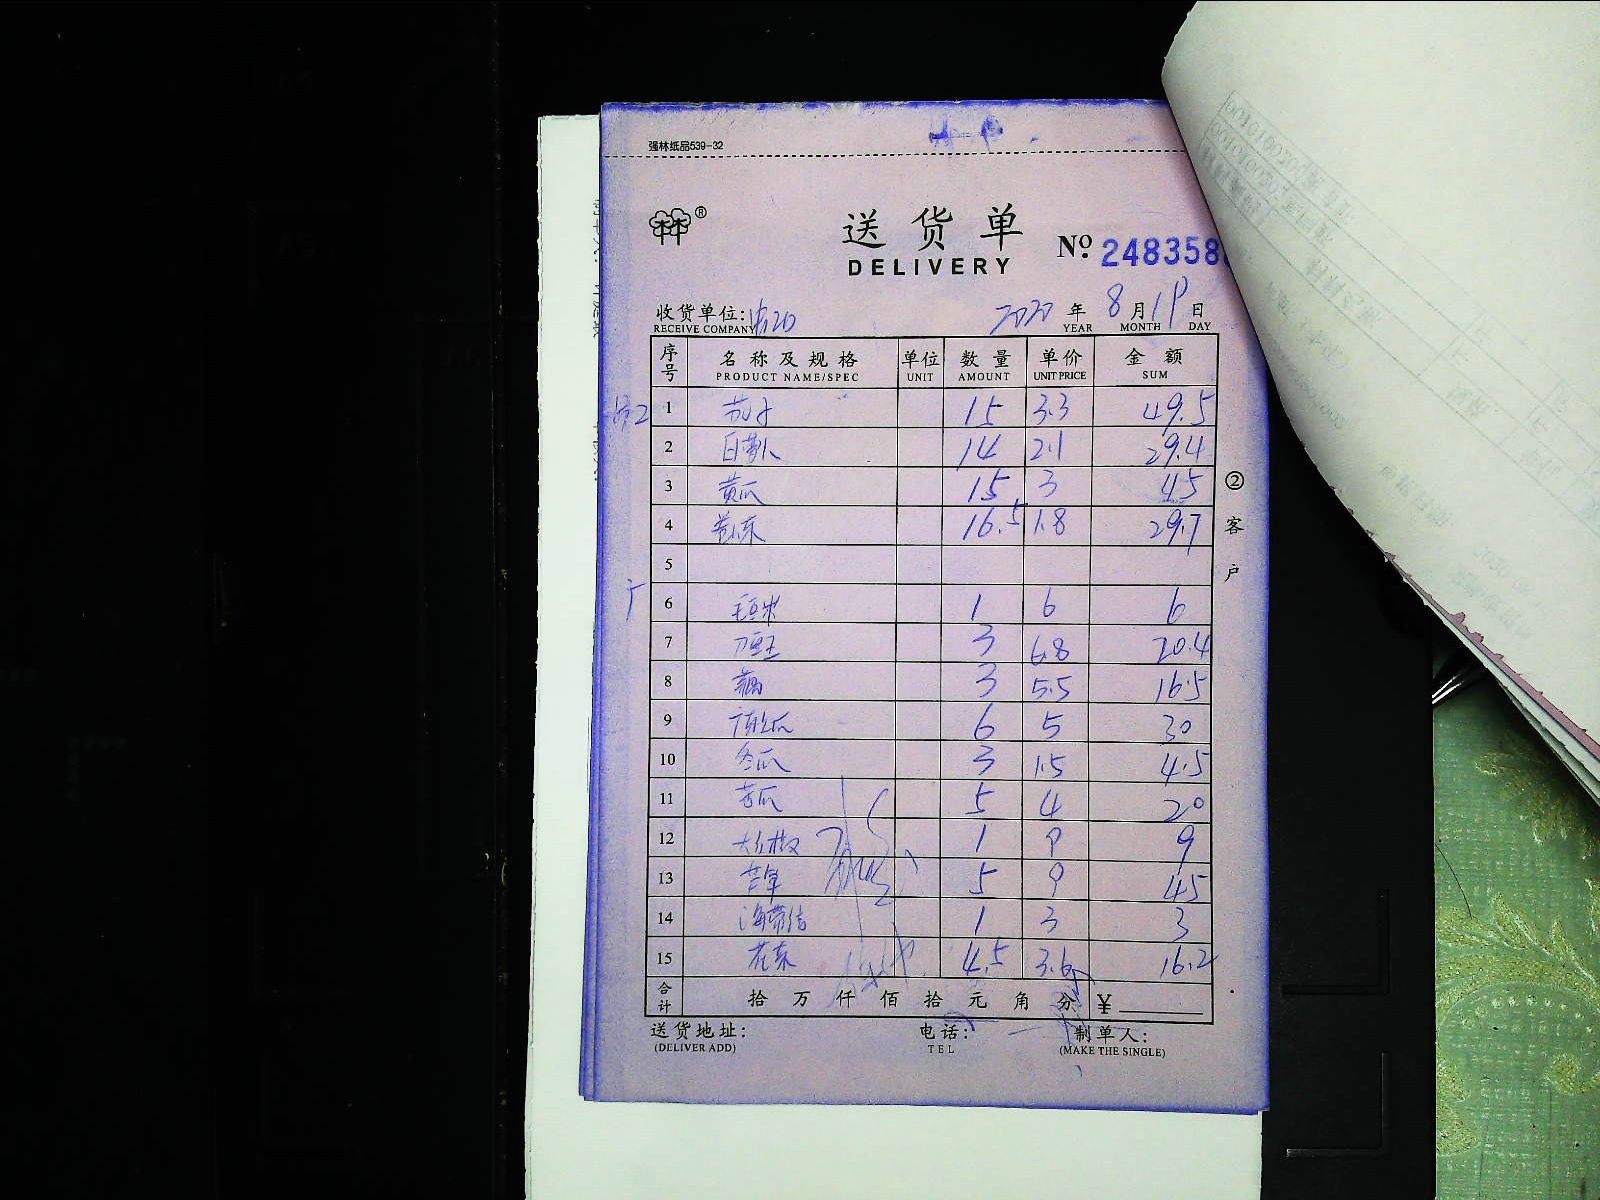 强林纸品539-32
送货单
DELIVERY
№ 248358
收货单位:
RECEIVE COMPANY
2020 年 8 月 19 日
YEAR MONTH DAY
序号 名称及规格 单位 数量 单价 金额
PRODUCT NAME/SPEC UNIT AMOUNT UNIT PRICE SUM
1 茄子 15 3.3 49.5
2 白萝卜 14 2.1 29.4
3 黄瓜 15 3 45
4 16.5 1.8 29.7
5
6 毛豆米 1 6 6
7 刀豆 3 6.8 20.4
8 藕 3 5.5 16.5
9 6 5 30
10 冬瓜 3 1.5 4.5
11 苦瓜 5 4 20
12 1 9 9
13 5 9 45
14 海带结 1 3 3
15 花菜 4.5 3.6 16.2
合计 拾 万 仟 佰 拾 元 角 分 ¥
送货地址: 电话: 制单人:
(DELIVER ADD) TEL (MAKE THE SINGLE)
②客户